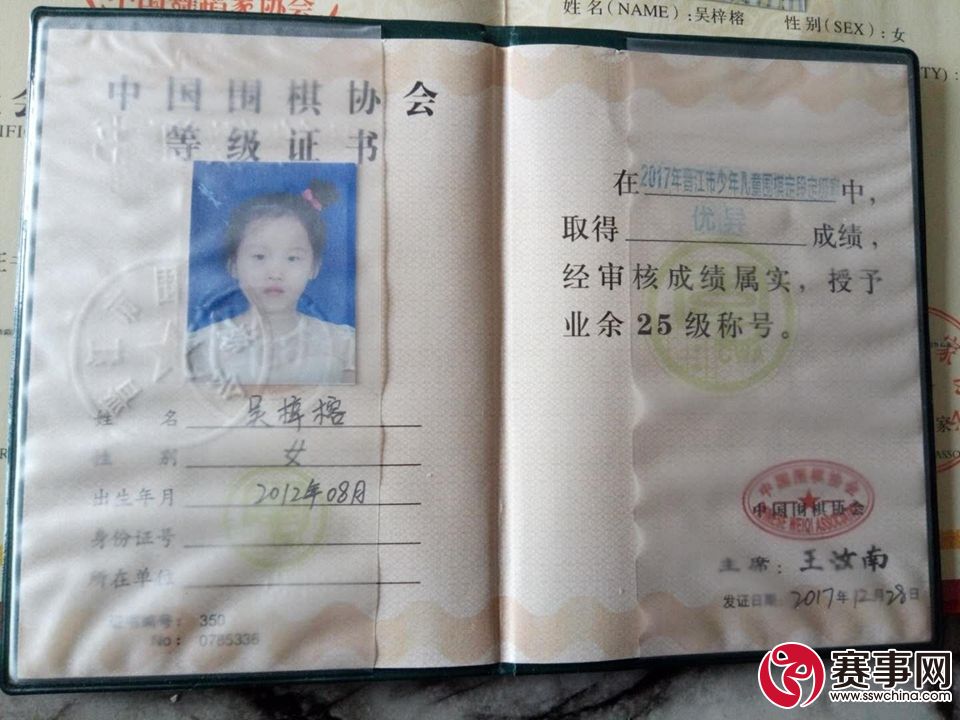 中国舞蹈家协会
姓名(NAME):吴梓榕 性别(SEX):女
中国围棋协会
等级证书
姓 名 吴梓榕
性 别 女
出生年月 2012年08月
身份证号
所在单位
证书编号: 350
No: 0785336
在2017年晋江市少年儿童围棋定段定级赛中,
取得 优异 成绩,
经审核成绩属实, 授予
业余25级称号。
中国围棋协会
中国围棋协会
CHINESE WEIQI ASSOCIATION
主席: 王汝南
发证日期: 2017年12月28日
赛事网
www.sswchina.com